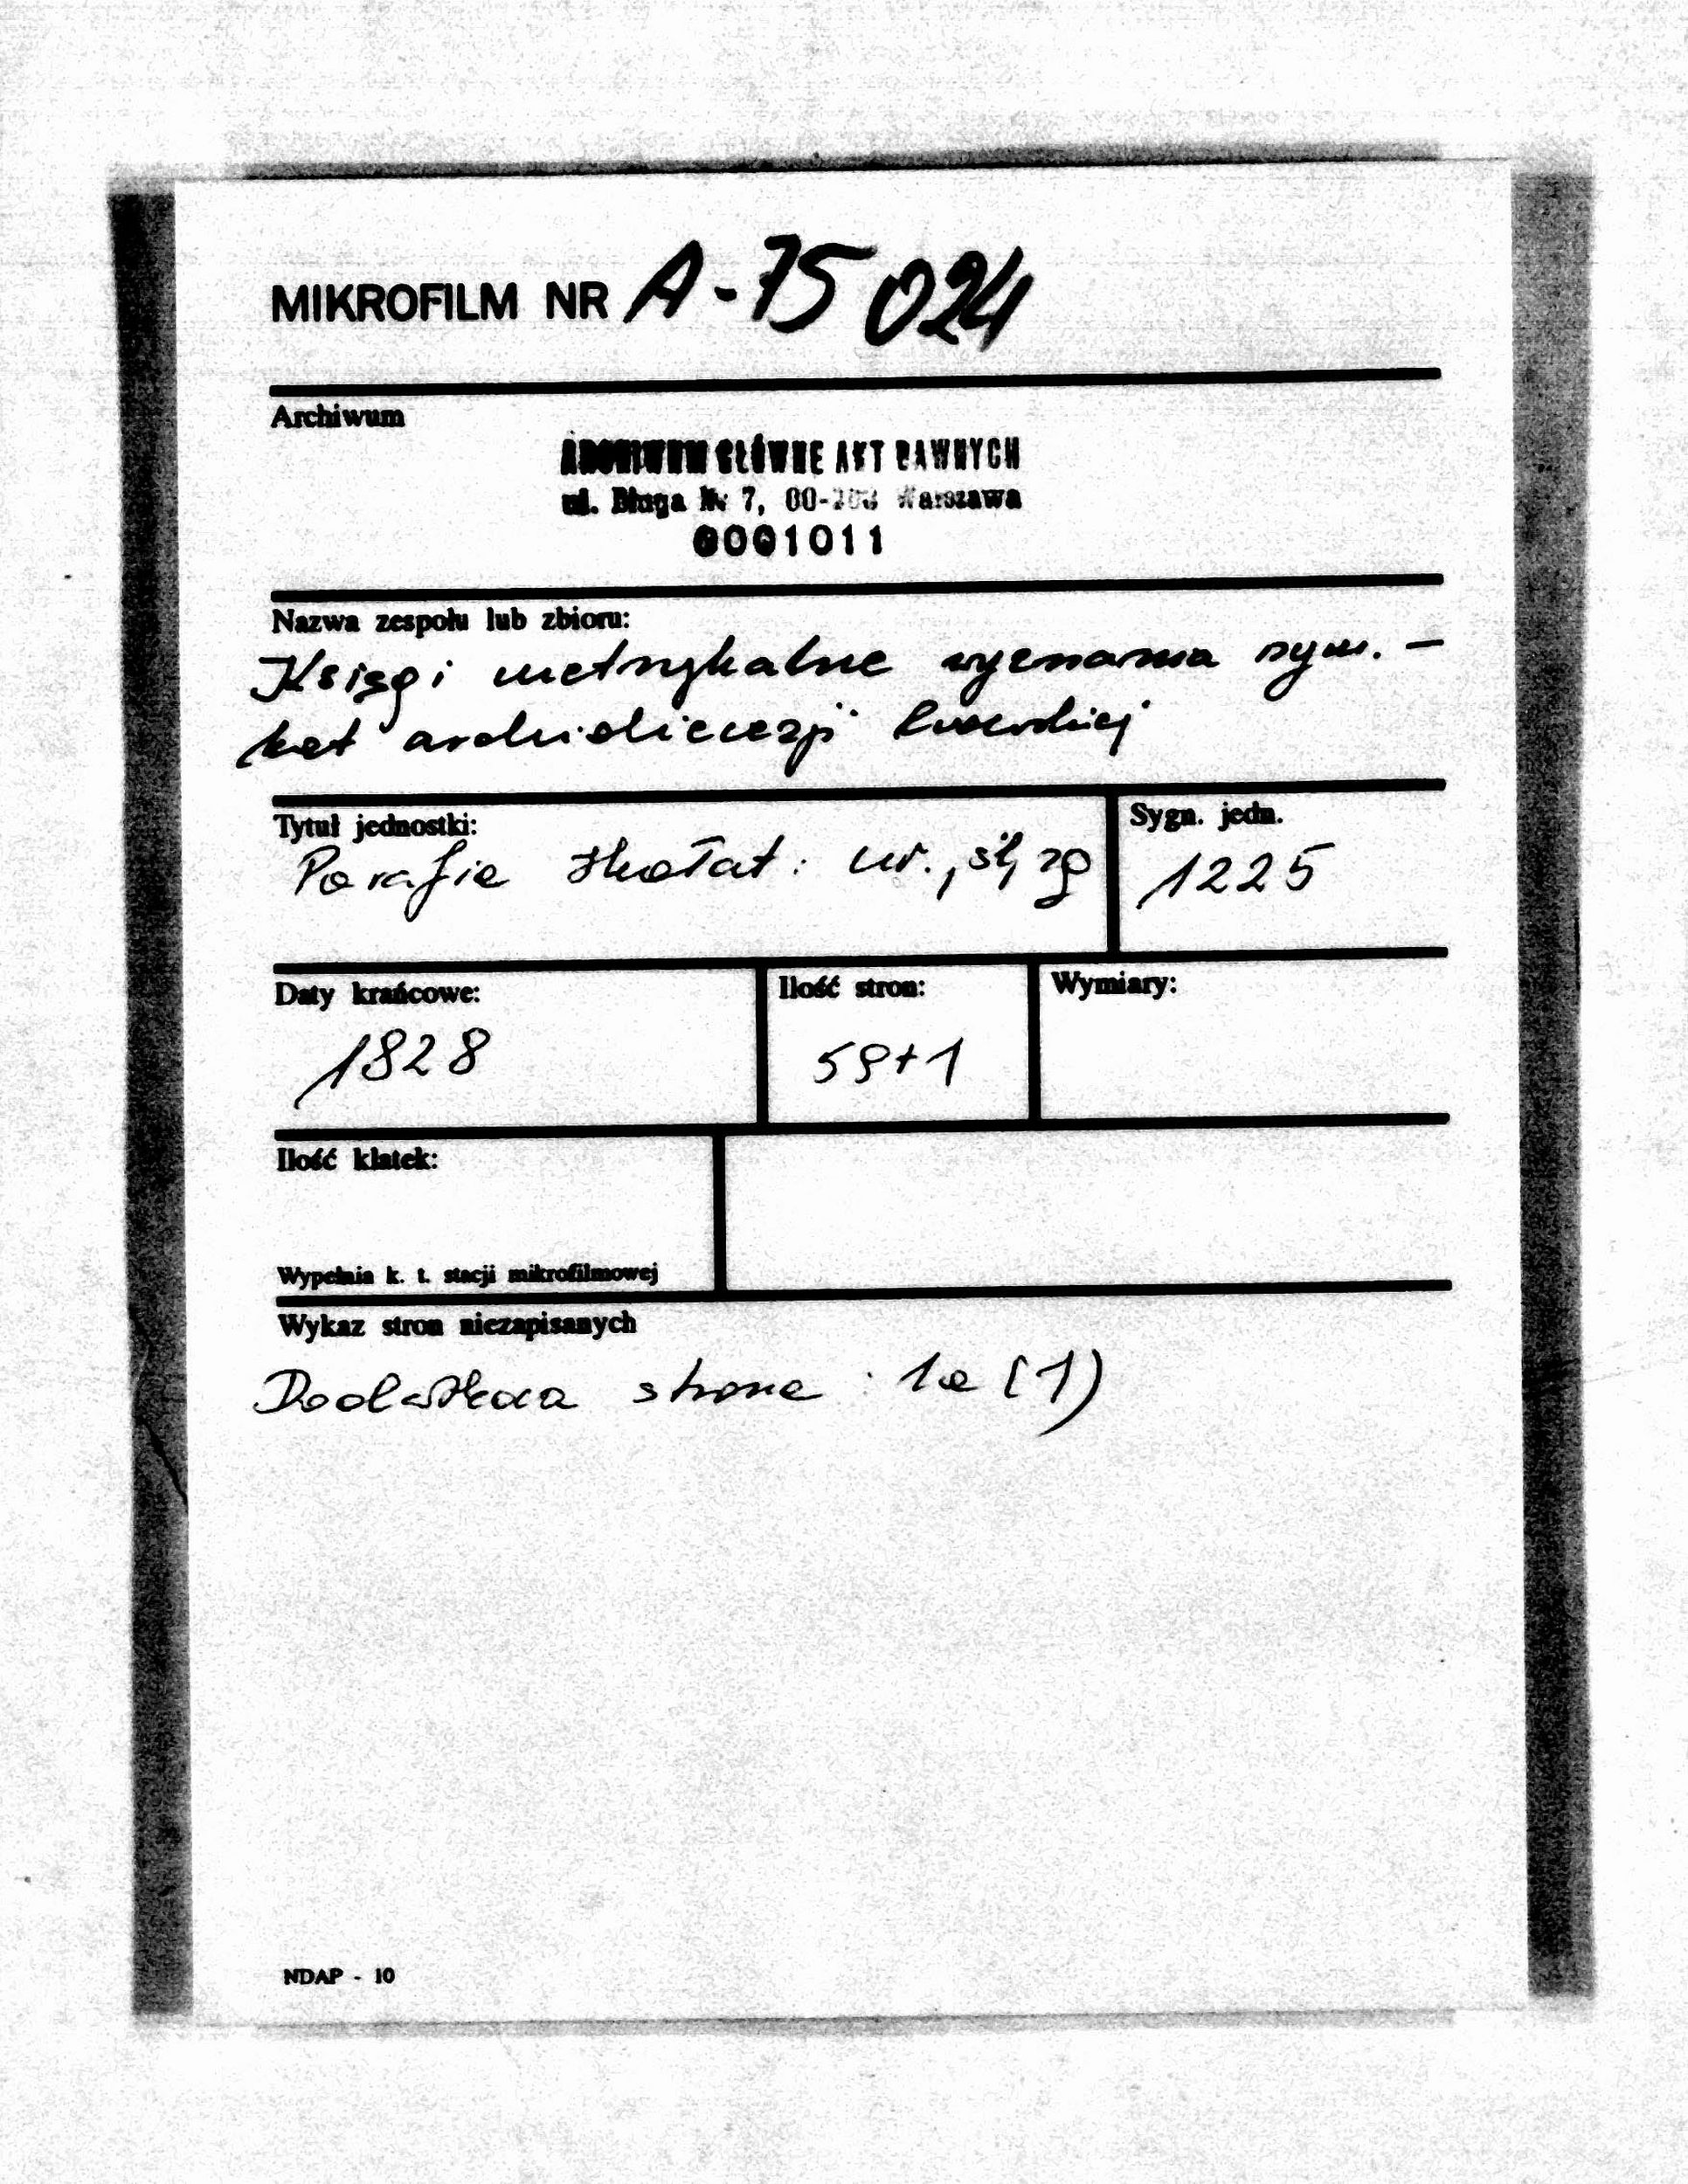 MIKROFILM NR A-75 024
Archiwum
ARCHIWUM GŁÓWNE AKT DAWNYCH
ul. Długa Nr 7, 00-263 Warszawa
0001011
Nazwa zespołu lub zbioru:
Księgi metrykalne wyznania rzym. -
kat archidiecezji lwowskiej
Tytuł jednostki:
Sygn. jedn.
Parafia Skałat: ur., śl, zg
1225
Daty krańcowe:
Ilość stron:
Wymiary:
1828
59+1
Ilość klatek:
Wypełnia k. t. stacji mikrofilmowej
Wykaz stron niezapisanych
Dodatkowa strona : 1a (1)
NDAP - 10